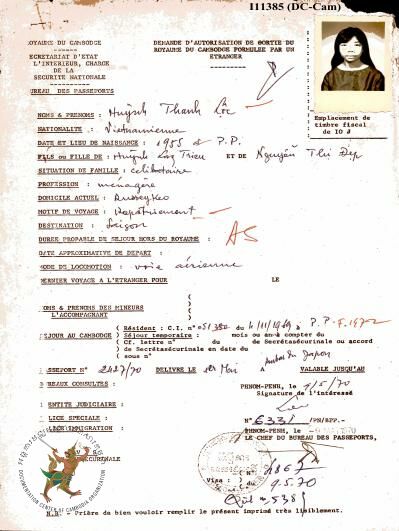 111385 (DC-Cam)
ROYAUME DU CAMBODGE
DEMANDE D'AUTORISATION DE SORTIE DU
ROYAUME DU CAMBODGE FORMULEE PAR UN
ETRANGER
SECRETARIAT D'ETAT
L'INTERIEUR, CHARGE
DE LA
SECURITE NATIONALE
BUREAU DES PASSEPORTS
Emplacement de
timbre fiscal
de 10 R
NOMS & PRENOMS : Huỳnh Thanh Lộc
NATIONALITE : Vietnamienne
DATE ET LIEU DE NAISSANCE : 1955 à P.P.
FILS ou FILLE DE : Huỳnh ET DE Nguyễn Thị Đẹp
SITUATION DE FAMILLE : célibataire
PROFESSION : ménagère
DOMICILE ACTUEL : Russeykeo
MOTIF DE VOYAGE : Rapatriement
DESTINATION : Saigon
DUREE PROBABLE DE SEJOUR HORS DU ROYAUME :
DATE APPROXIMATIVE DE DEPART :
MODE DE LOCOMOTION : voie aérienne
DERNIER VOYAGE A L'ETRANGER POUR LE
NOMS & PRENOMS DES MINEURS
L'ACCOMPAGNANT
( Résident : C.I. n° 051380 du 11/11/1969 à P.P.
SEJOUR AU CAMBODGE ( Séjour temporaire : mois ou an à compter du
( Cf. lettre n° du de Secrétasécurinale ou accord
( de Secrétasécurinale en date du
( sous n°
PASSEPORT N° 2427/70 DELIVRE LE 1er Mai A Ambas du Japon VALABLE JUSQU'AU
BUREAUX CONSULTES :
PHNOM-PENH, le 9/5/70
Signature de l'intéressé
IDENTITE JUDICIAIRE :
POLICE SPECIALE :
POLICE IMMIGRATION :
N° 6331 /PR/BPP.-
PHNOM-PENH, le 1970
LE CHEF DU BUREAU DES PASSEPORTS,
Visa :
( N° 4867
( 9.5.70
DOCUMENTATION CENTER OF CAMBODIA ORGANIZATION
N.B. - Prière de bien vouloir remplir le présent imprimé très lisiblement.